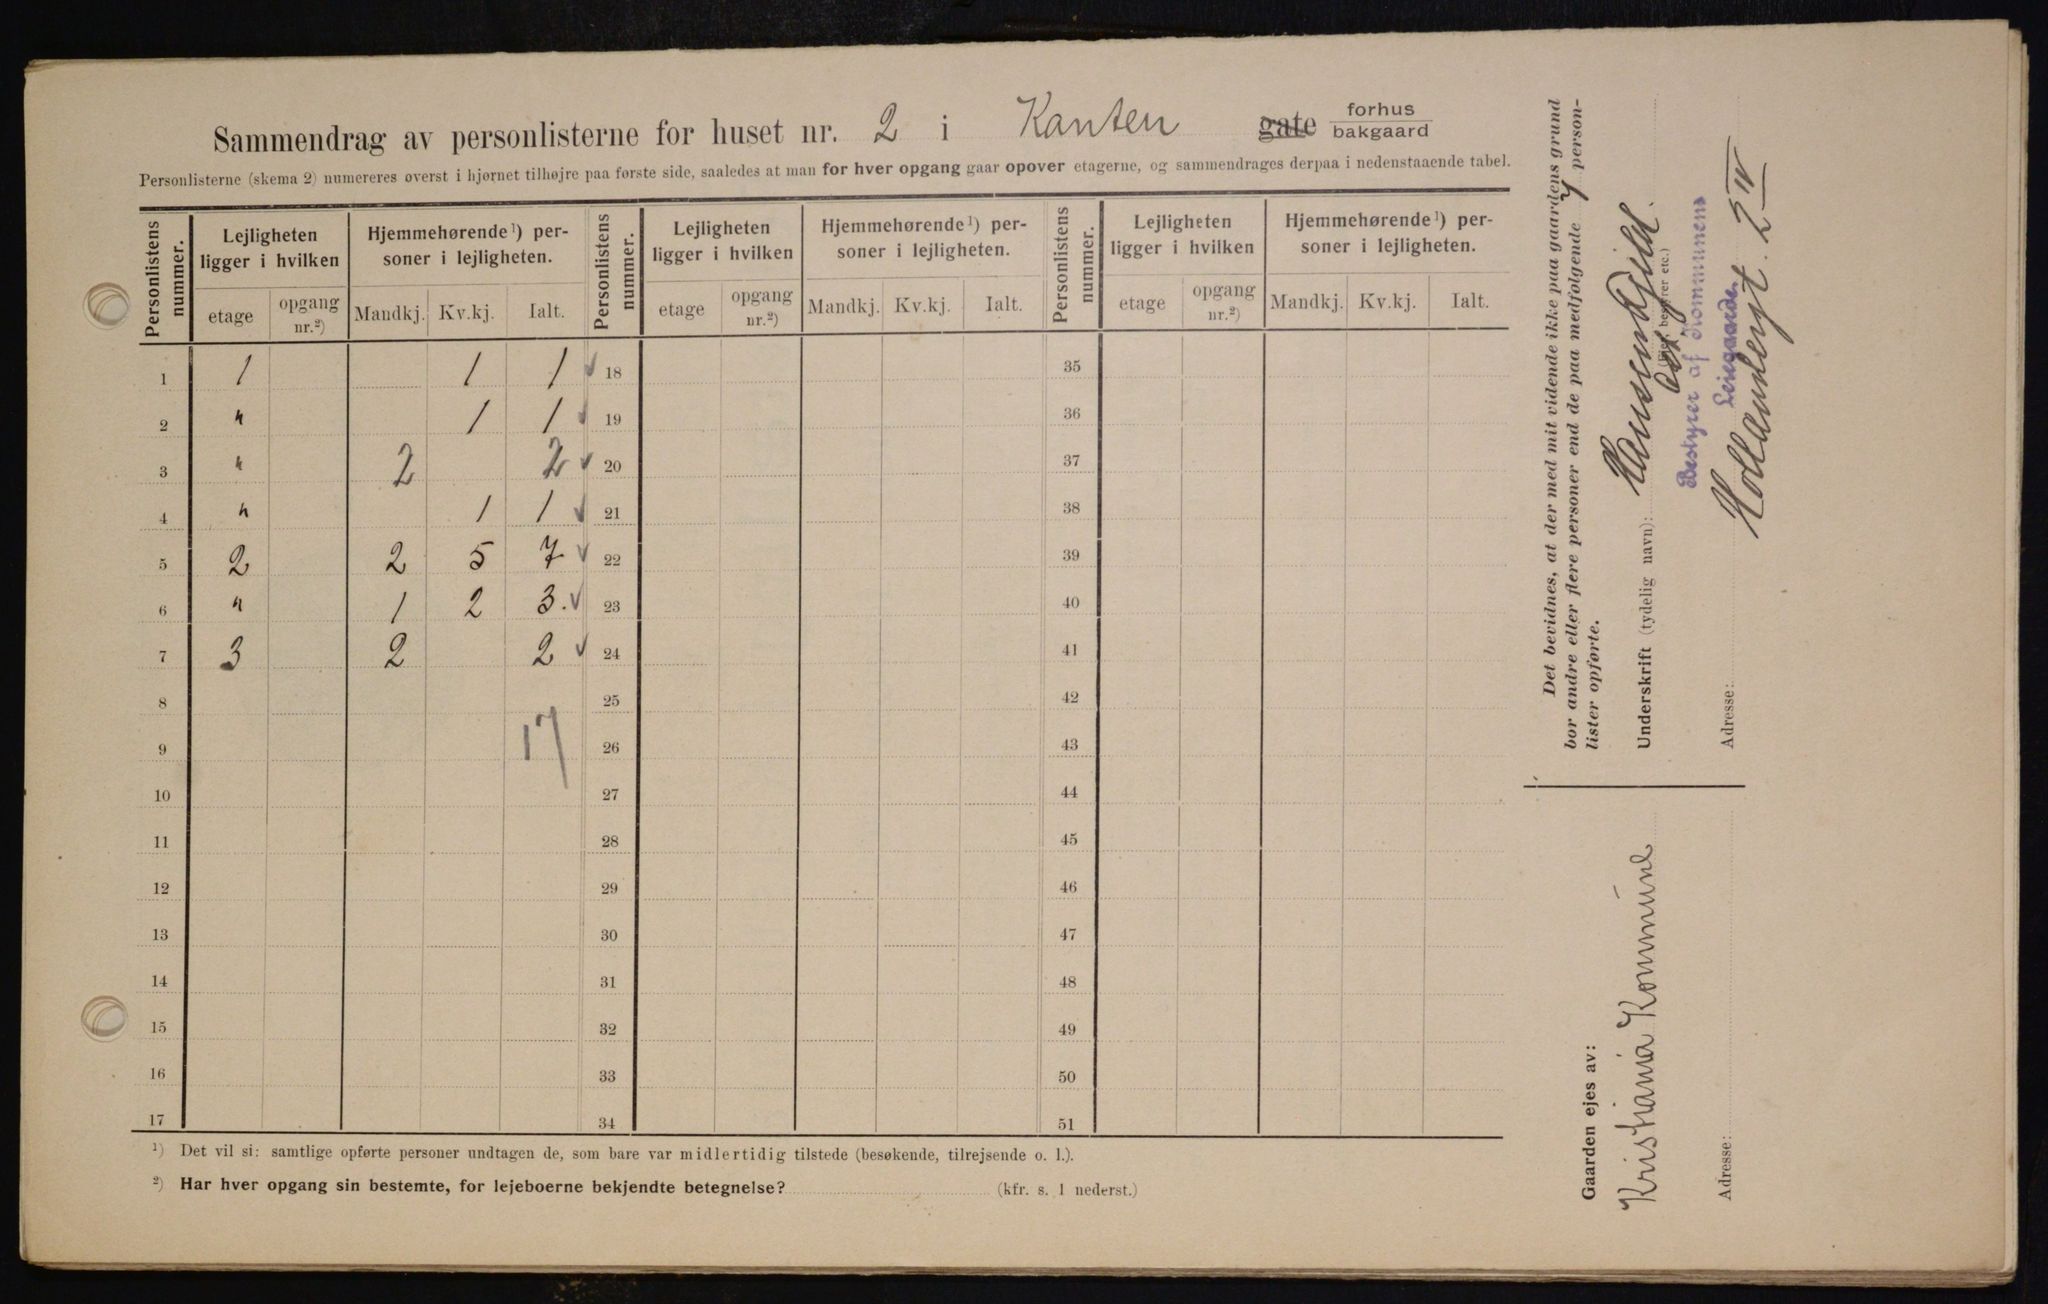 Sammendrag av personlisterne for huset nr. 2 i Kanten gate forhus
bakgaard
Personlisterne (skema 2) numereres øverst i hjørnet tilhøjre paa første side, saaledes at man for hver opgang gaar opover etagerne, og sammendrages derpaa i nedenstaaende tabel.
Personlistens nummer. Lejligheten ligger i hvilken Hjemmehørende ¹) personer i lejligheten. Personlistens nummer. Lejligheten ligger i hvilken Hjemmehørende ¹) personer i lejligheten. Personlistens nummer. Lejligheten ligger i hvilken Hjemmehørende ¹) personer i lejligheten.
etage opgang nr.²) Mandkj. Kv.kj. Ialt. etage opgang nr.²) Mandkj. Kv.kj. Ialt. etage opgang nr.²) Mandkj. Kv.kj. Ialt.
1 1 1 1 18 35
2 " 1 1 19 36
3 " 2 2 20 37
4 " 1 1 21 38
5 2 2 5 7 22 39
6 " 1 2 3. 23 40
7 3 2 2 24 41
8 25 42
9 17 26 43
10 27 44
11 28 45
12 29 46
13 30 47
14 31 48
15 32 49
16 33 50
17 34 51
¹) Det vil si: samtlige opførte personer undtagen de, som bare var midlertidig tilstede (besøkende, tilrejsende o. l.).
²) Har hver opgang sin bestemte, for lejeboerne bekjendte betegnelse? (kfr. s. 1 nederst.)
Det bevidnes, at der med mit vidende ikke paa gaardens grund
bor andre eller flere personer end de paa medfølgende 7 person-
lister opførte.
Underskrift (tydelig navn):
(Ejer, bestyrer etc.)
Bestyrer af Kommunens
Leiegaarde.
Adresse: Hollandergt. 2 IV
Gaarden ejes av:
Kristiania Kommune
Adresse: